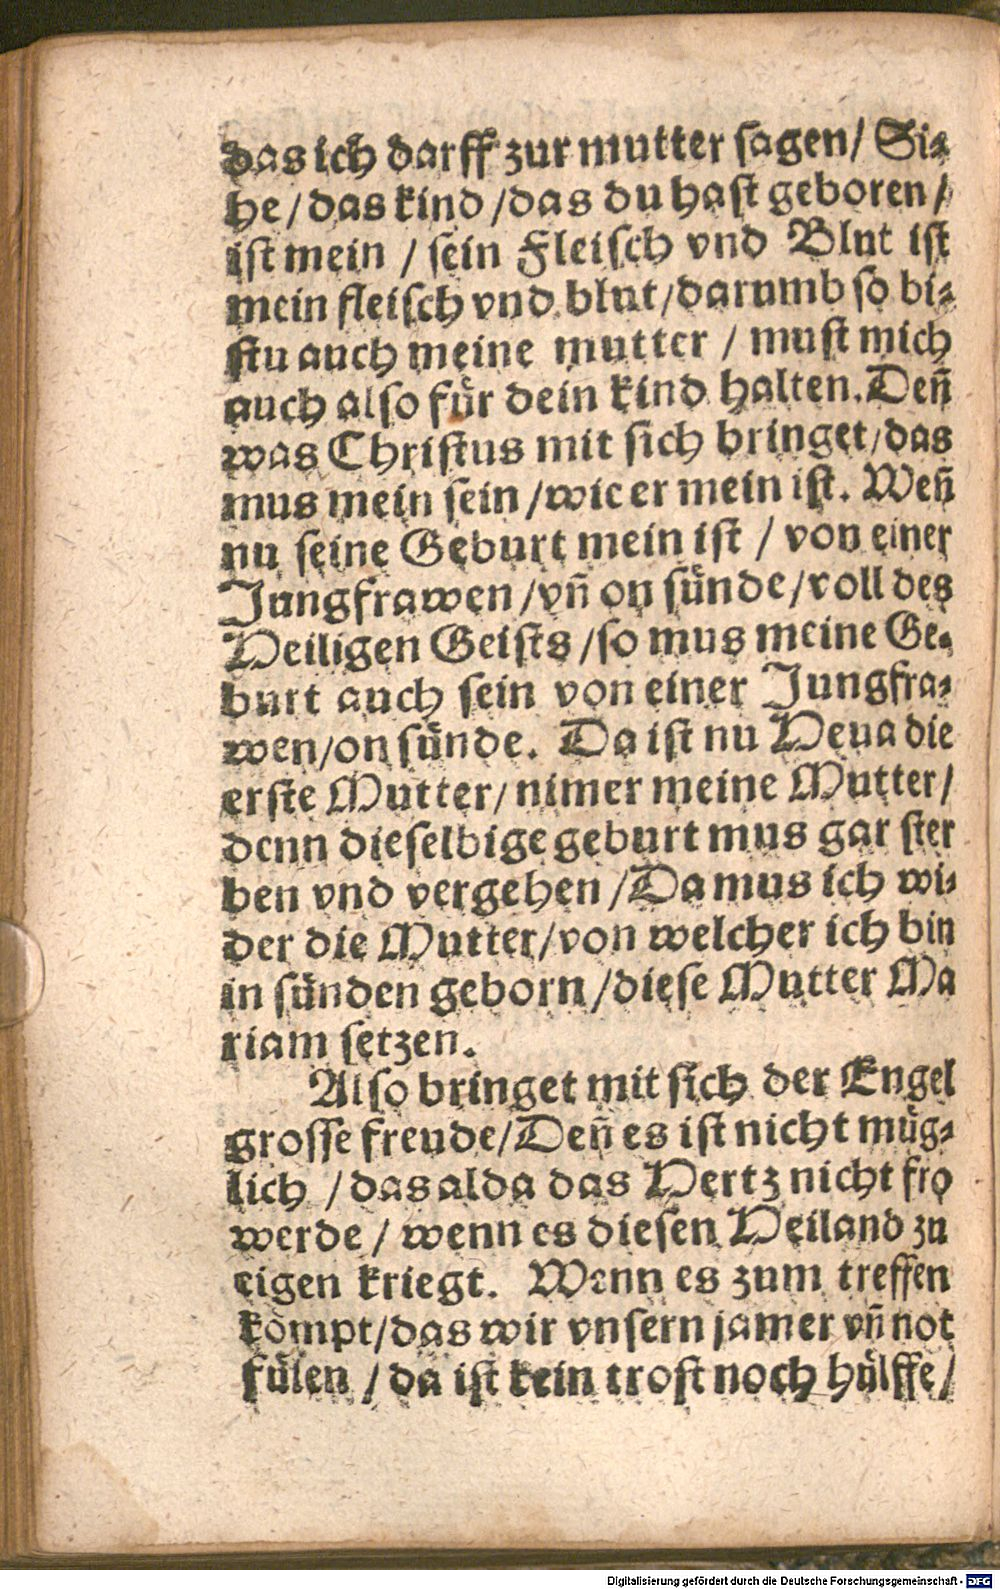 das ich darff zur mutter sagen/ Si⸗
he/das kind/das du hast geboren/
ist mein / sein Fleisch vnd Blut ist
mein fleisch vnd blut/darumb so bi⸗
stu auch meine mutter / must mich
auch also für dein kind halten. Deñ
was Christus mit sich bringet/das
mus mein sein/wie er mein ist. Weñ
nu seine Geburt mein ist / von einer
Jungfrawen/vñ on sünde/voll des
Heiligen Geists/so mus meine Ge⸗
burt auch sein von einer Jungfra⸗
wen/on sünde. Da ist nu Heua die
erste Mutter/nimer meine Mutter/
denn dieselbige geburt mus gar ster
ben vnd vergehen/Da mus ich wi⸗
der die Mutter/von welcher ich bin
in sünden geborn/diese Mutter Ma
riam setzen.
Also bringet mit sich der Engel
grosse freude/Deñ es ist nicht müg⸗
lich /das alda das Hertz nicht fro
werde/ wenn es diesen Heiland zu
eigen kriegt. Wenn es zum treffen
kömpt/das wir vnsern jamer vñ not
fülen / da ist kein trost noch hülffe/
Digitalisierung gefördert durch die Deutsche Forschungsgemeinschaft - DFG